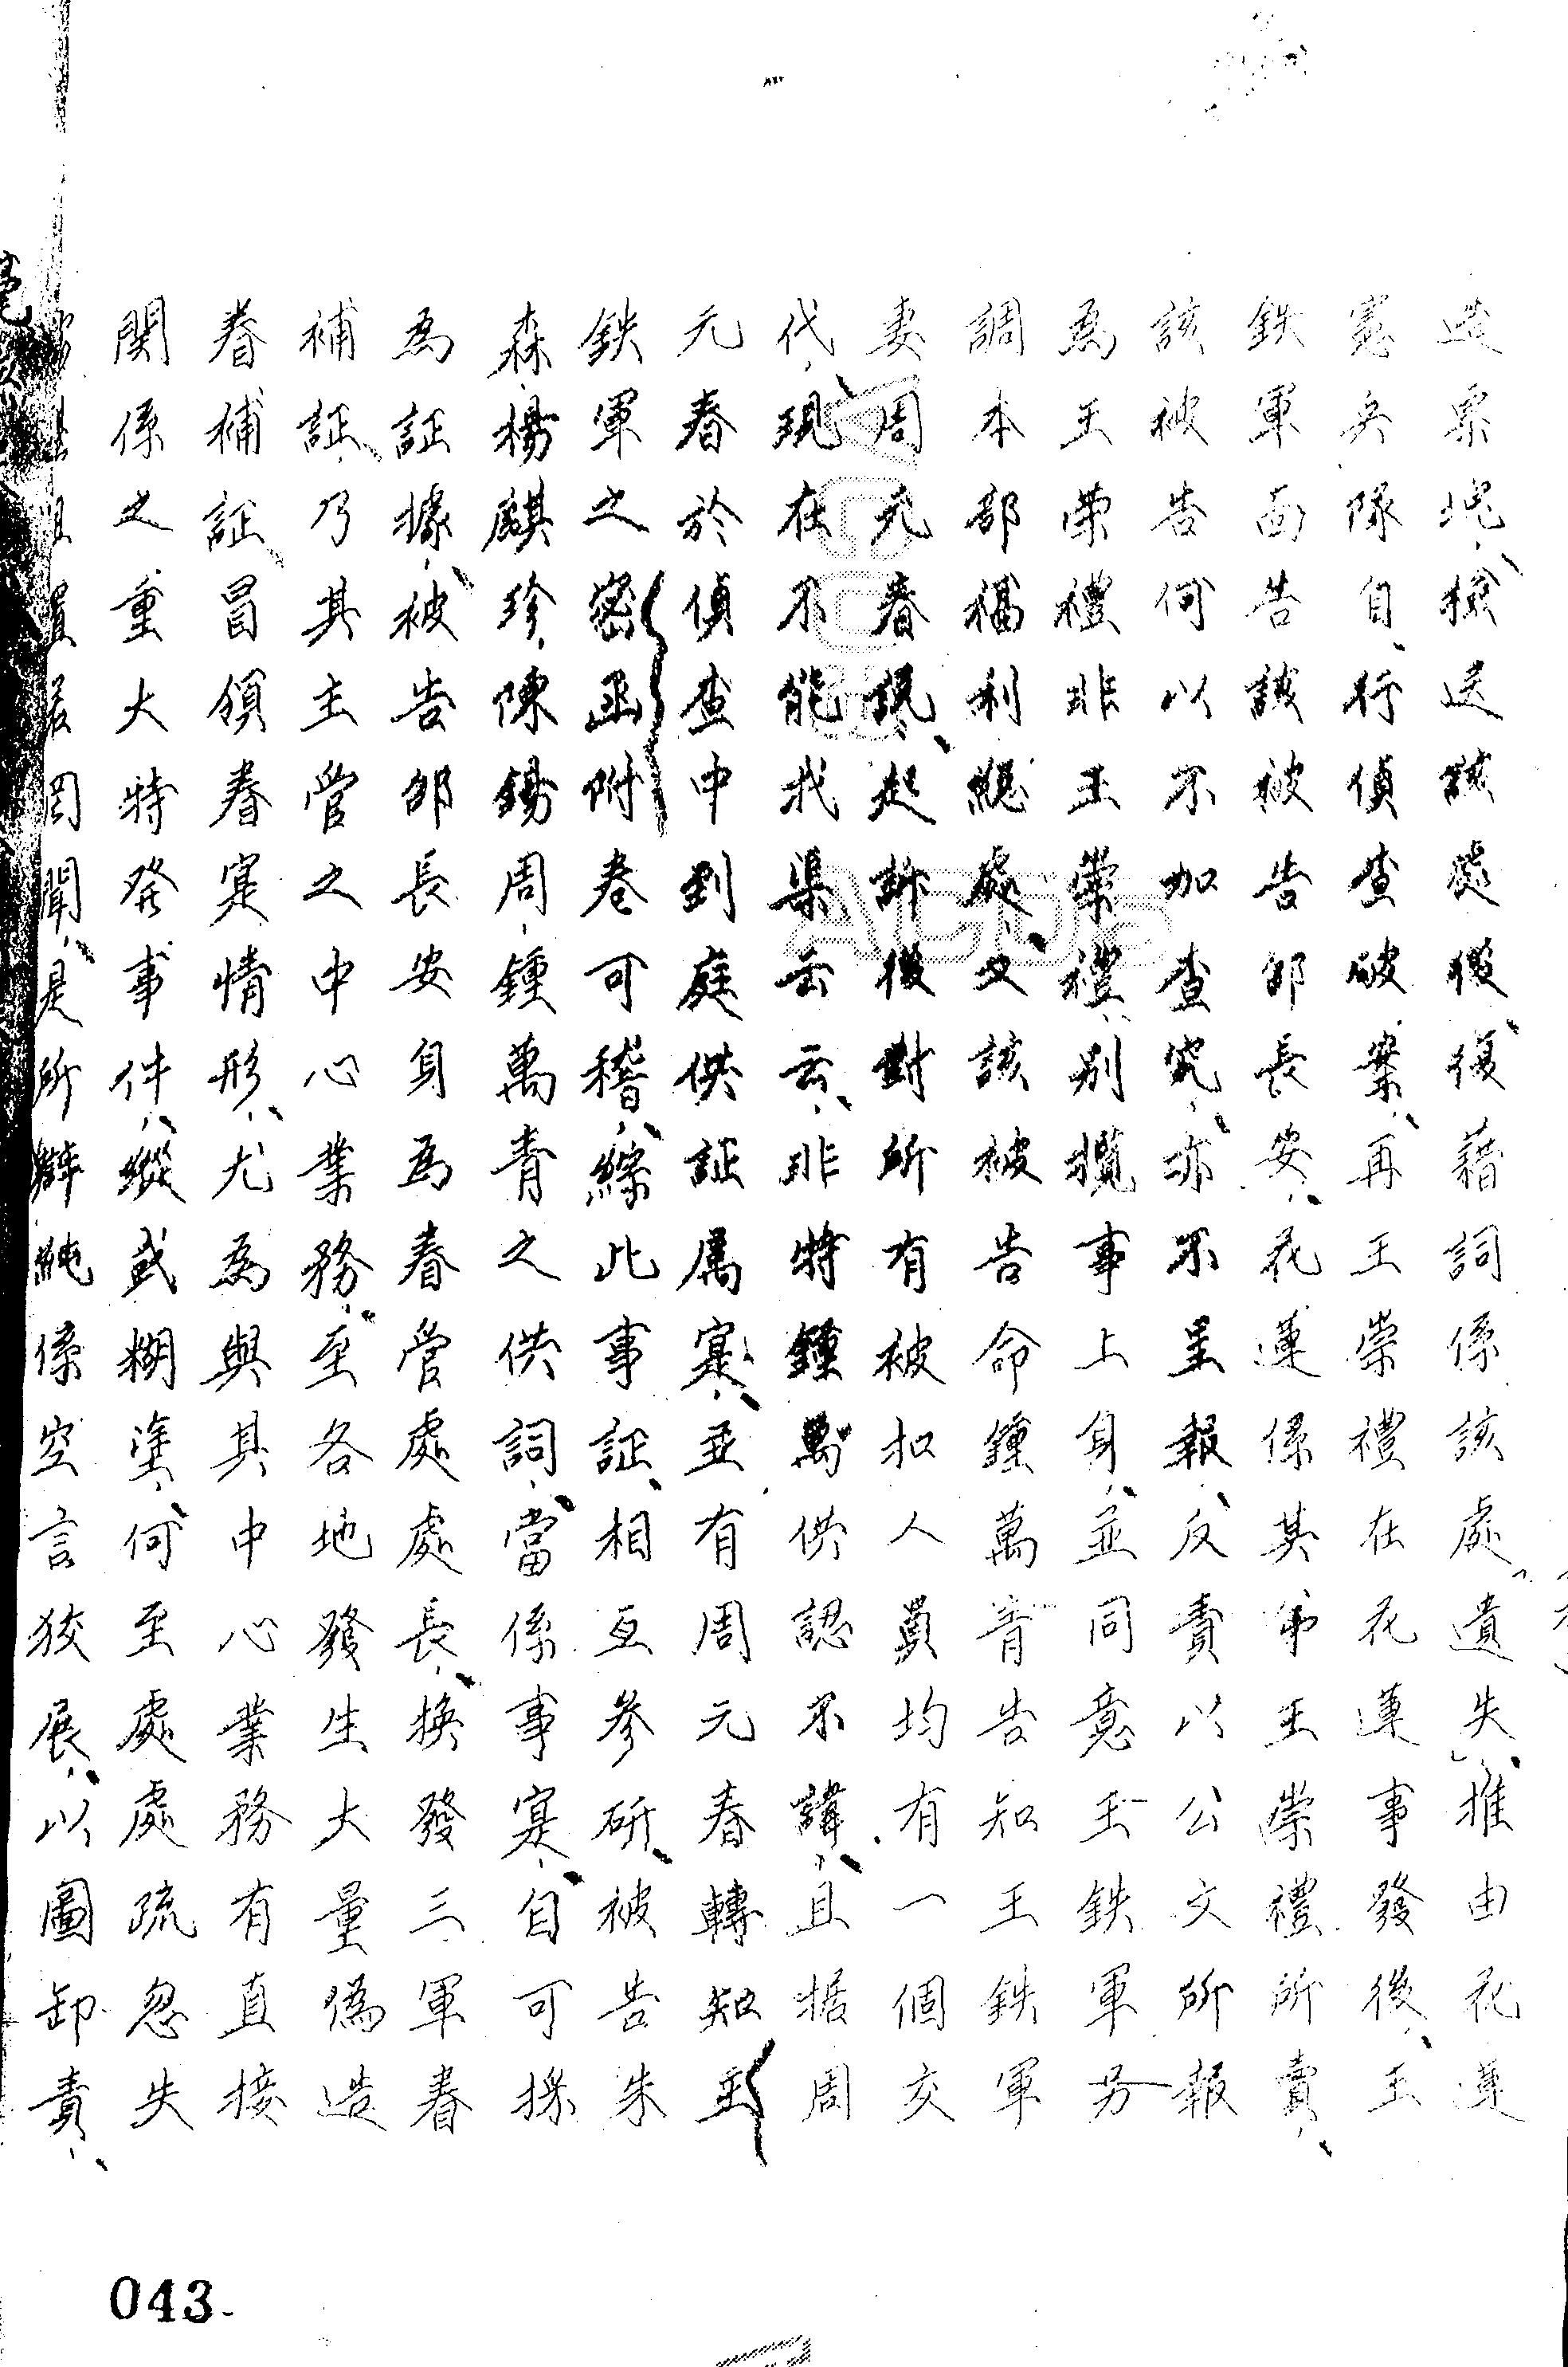 造票地、檢送該處後、復藉詞係該處遺失、推由花蓮
憲兵隊自行偵查破案、再王荣禮在花蓮事發後、王
鉄軍面告該被告邰長安、花蓮係其弟王荣禮所賣、
該被告何以不加查究、亦不呈報、反責以公文所報
為王荣禮非王荣禮、別攬事上身、並同意王鉄軍另
調本部福利總處、又該被告命鍾萬青告知王鉄軍
妻周元春説、起訴後對所有被扣人員均有一個交
代、現在不能找渠云云、非特鍾萬供認不諱、且据周
元春於偵查中到庭供証属寔、並有周元春轉知王
鉄軍之密函附卷可稽、綜此事証、相互參研、被告朱
森、楊麒珍、陳錫周、鍾萬青之供詞、當係事寔、自可採
為証據、被告邰長安身為眷管處處長、換發三軍眷
補証、乃其主管之中心業務、至各地發生大量偽造
眷補証冒領眷寔情形、尤為與其中心業務有直接
関係之重大特発事件、縱或糊塗、何至處處疏忽失
聞、是所辯純係空言狡展、以圖卸責、
043